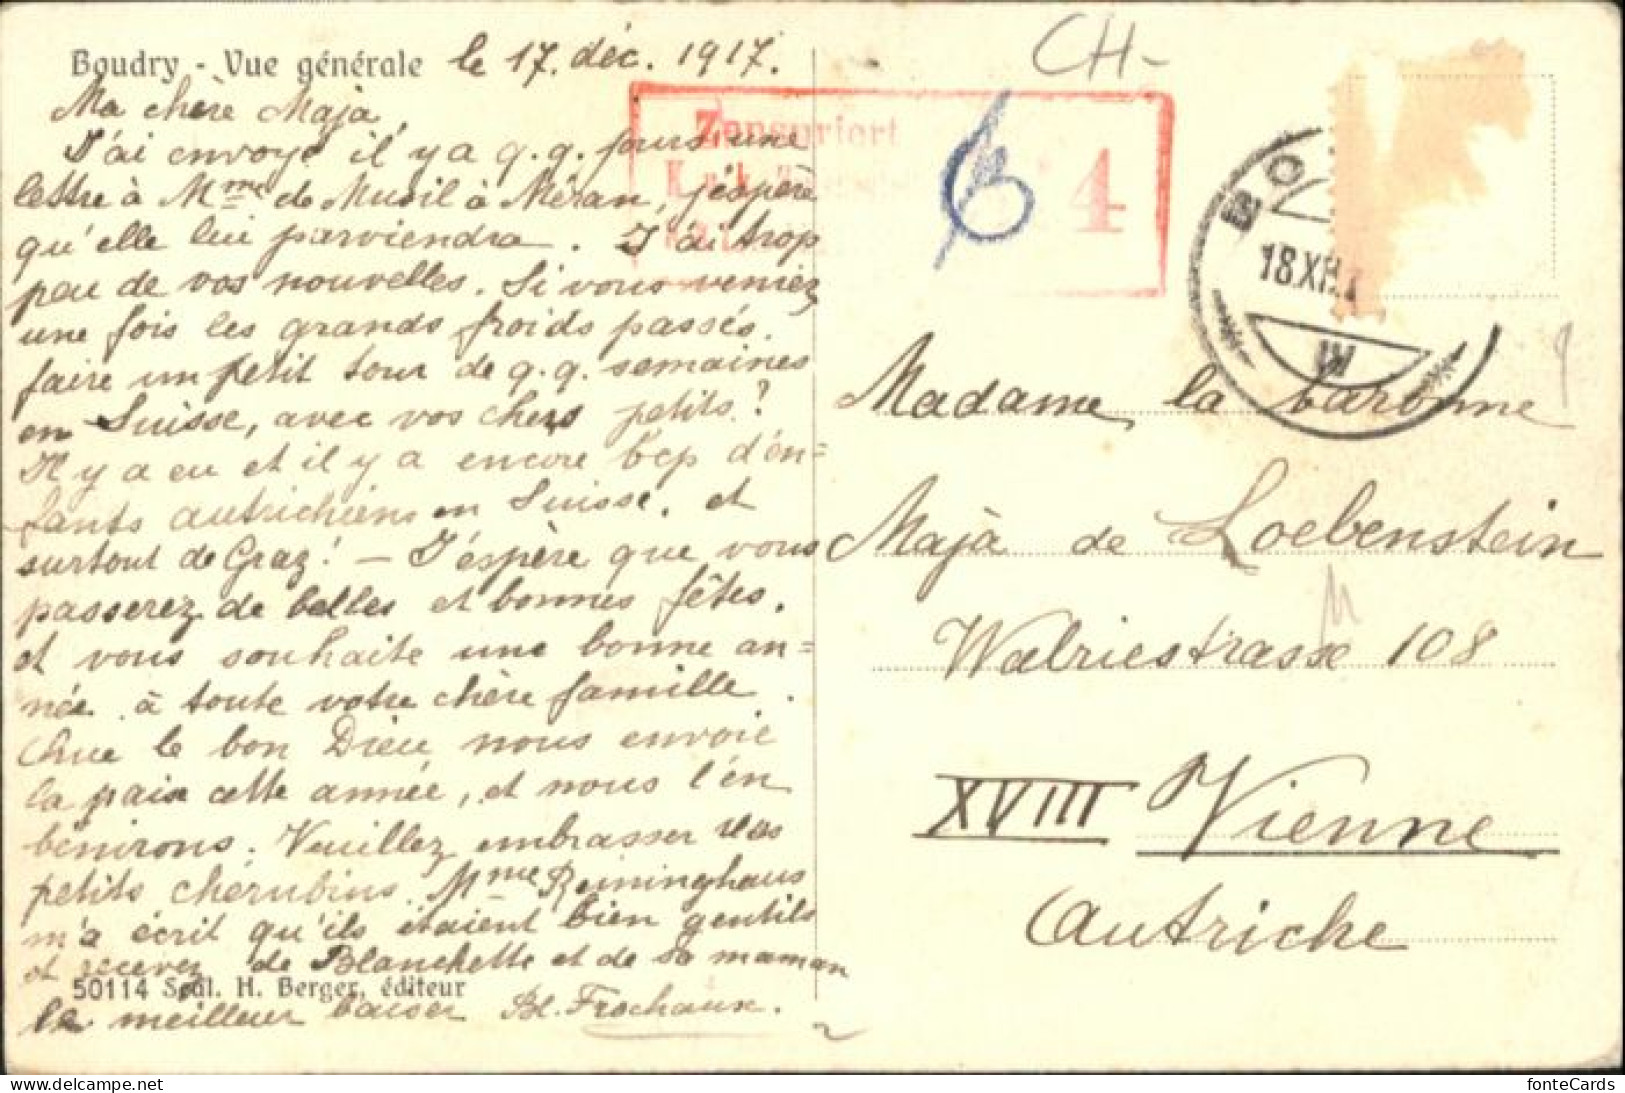 Boudry - Vue générale le 17. déc. 1917.
Ma chère Maja,
J'ai envoyé il y a q.q. jours une
lettre à Mme de Musil à Méran, j'éspère
qu'elle lui parviendra. J'ai trop
peu de vos nouvelles. Si vous veniez
une fois les grands froids passés.
faire un petit tour de q.q. semaines
en Suisse, avec vos chers petits?
Il y a eu et il y a encore bcp d'en=
fants autrichiens en Suisse. et
surtout de Graz! — J'éspère que vous
passerez de belles et bonnes fêtes.
et vous souhaite une bonne an=
née à toute votre chère famille.
Que le bon Dieu nous envoie
la paix cette année, et nous l'en
bénirons. Veuillez embrasser vos
petits chérubins. Mme Reininghaus
m'a écrit qu'ils étaient bien gentils
et recevez de Blanchette et de sa maman
50114 Soal. H. Berger, éditeur
le meilleur baiser Bl. Frochaux.
CH-
Zensuriert
K.u.k.
4
6
BO
18.XII.
Madame la baronne
Majà de Loebenstein
Walriestrasse 108
XVIII Vienne
Autriche
fonteCards